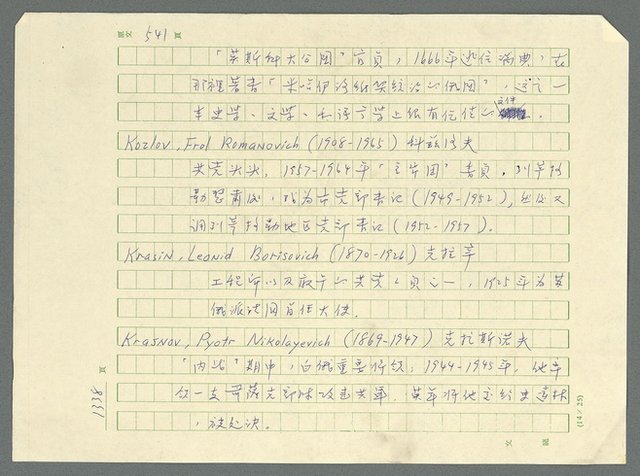 原文 541 頁
「莫斯科大公國」官員，1666年逃往瑞典，在
那裡著書「米哈伊洛維契統治的俄國」，這是一
本史学、文学、和語言学上很有价值的文件.
Kozlov, Frol Romanovich (1908-1965) 科兹洛夫
共党头头，1957-1964年「主席團」書員，列芋格
勒 肅, 成为 党部書记 (1949-1952), 然后又
调列芋格勒地区党部書记 (1952-1957).
Krasin, Leonid Borisovich (1870-1926) 克拉辛
工程师以及最早的共党人員之一，1925年为苏
俄派法國首任大使.
Krasnov, Pyotr Nikolayevich (1869-1947) 克拉斯诺夫
「内战」期中，白俄重要將领；1944-1945年，他率
领一支哥萨克部隊攻击共軍. 英軍將他交给史達林
，被处决.
1338 頁
(14×25)
文 號